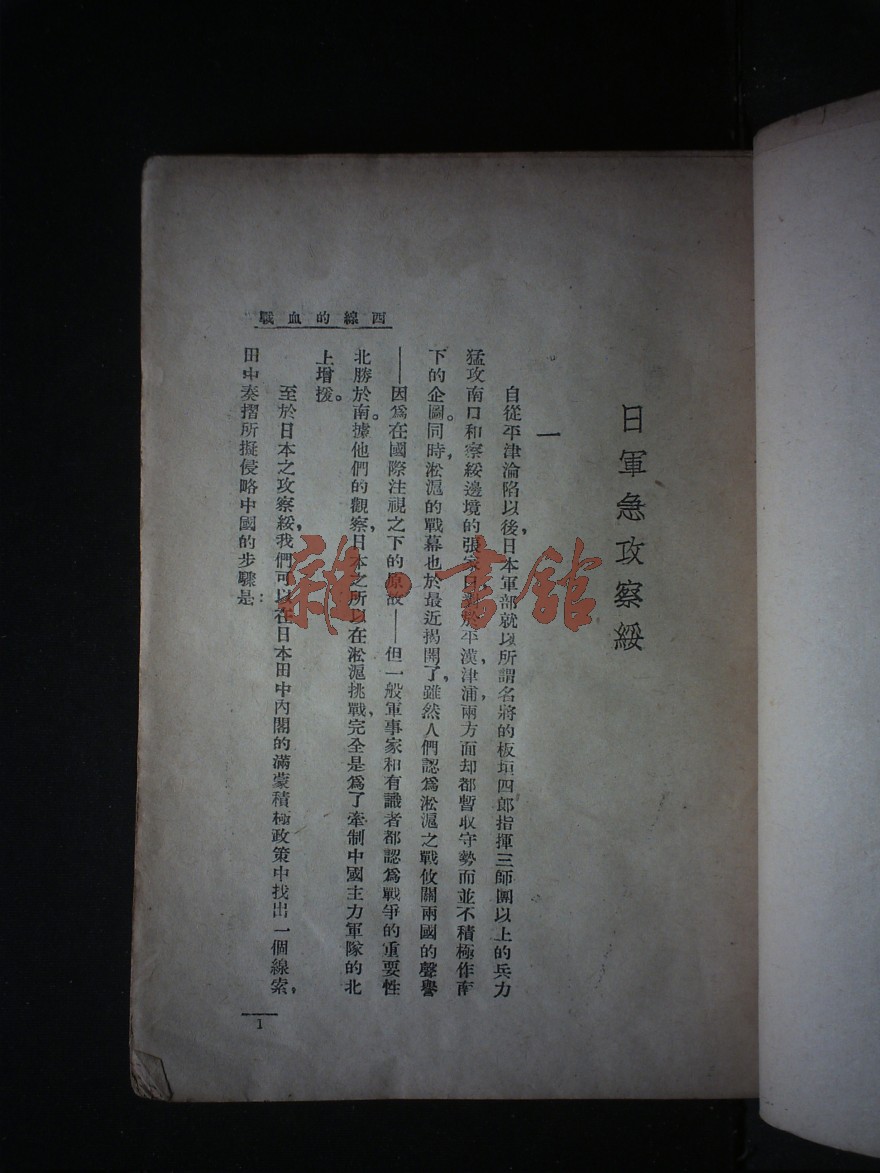 西線的血戰
日軍急攻察綏
一
自從平津淪陷以後，日本軍部就以所謂名將的板垣四郎指揮三師團以上的兵力
猛攻南口和察綏邊境的張家口，對於平漢，津浦，兩方面却都暫取守勢而並不積極作南
下的企圖。同時，淞滬的戰幕也於最近揭開了，雖然人們認爲淞滬之戰攸關兩國的聲譽
——因爲在國際注視之下的原故——但一般軍事家和有識者都認爲戰爭的重要性
北勝於南。據他們的觀察，日本之所以在淞滬挑戰，完全是爲了牽制中國主力軍隊的北
上增援。
至於日本之攻察綏，我們可以在日本田中內閣的滿蒙積極政策中找出一個線索，
田中奏摺所擬侵略中國的步驟是：
1
雜·書館